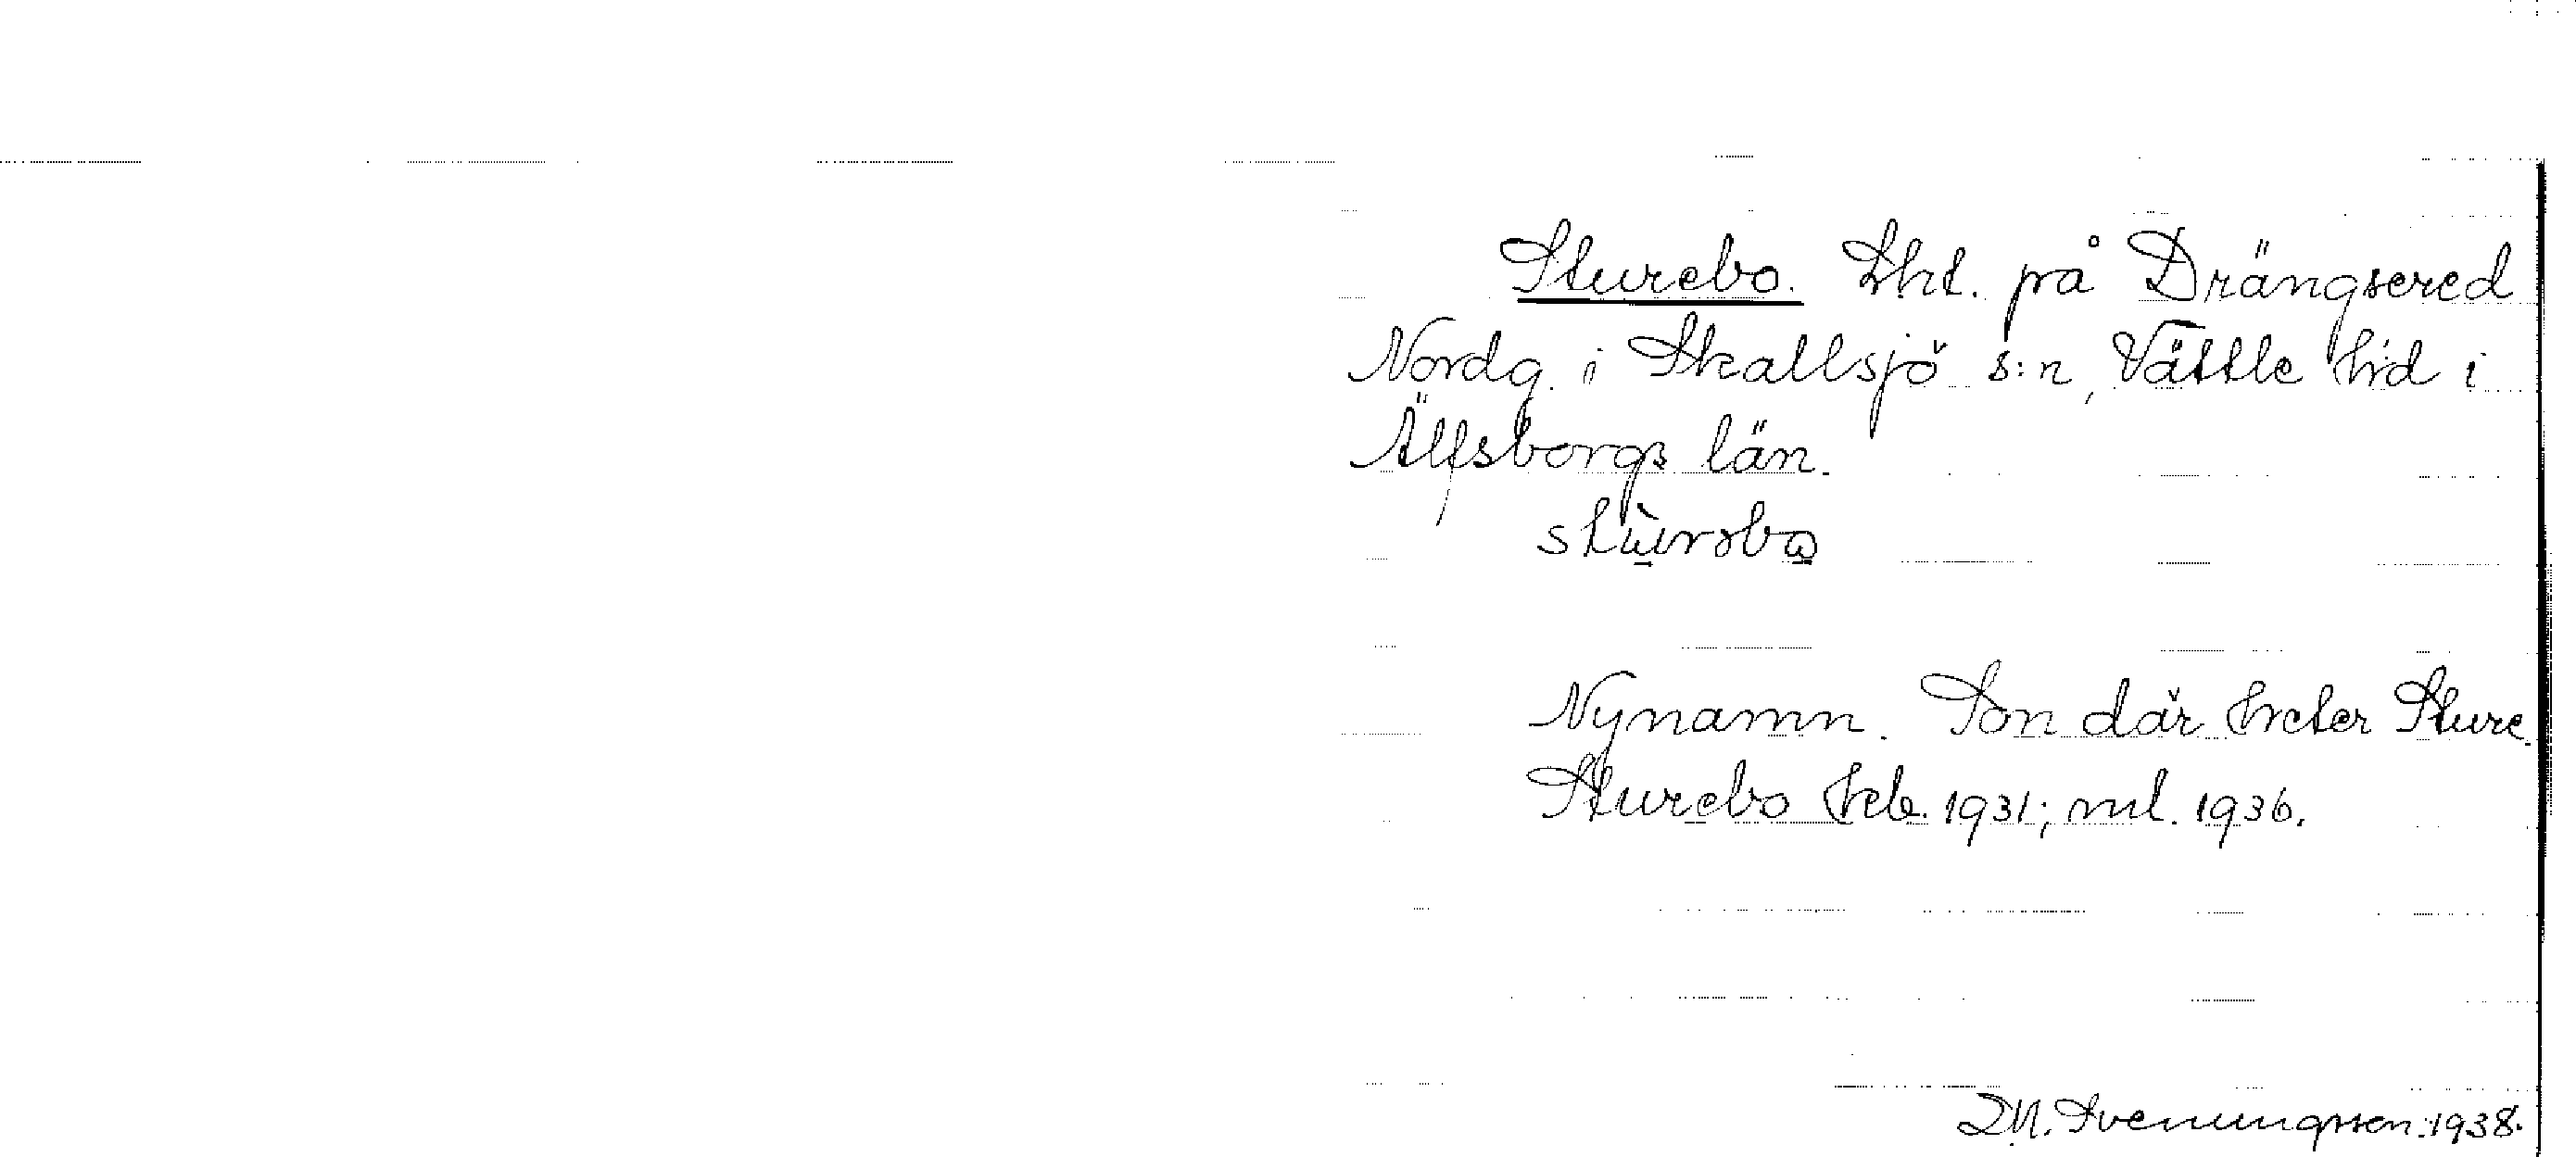 Sturebo. Lht. på Drängsered
Nordg. i Skallsjö s:n, Vättle hd i
Älfsborgs län.
Nynamn. Son där heter Sture.
Sturebo 1931; ml. 1936.
Svenungsson. 1938.